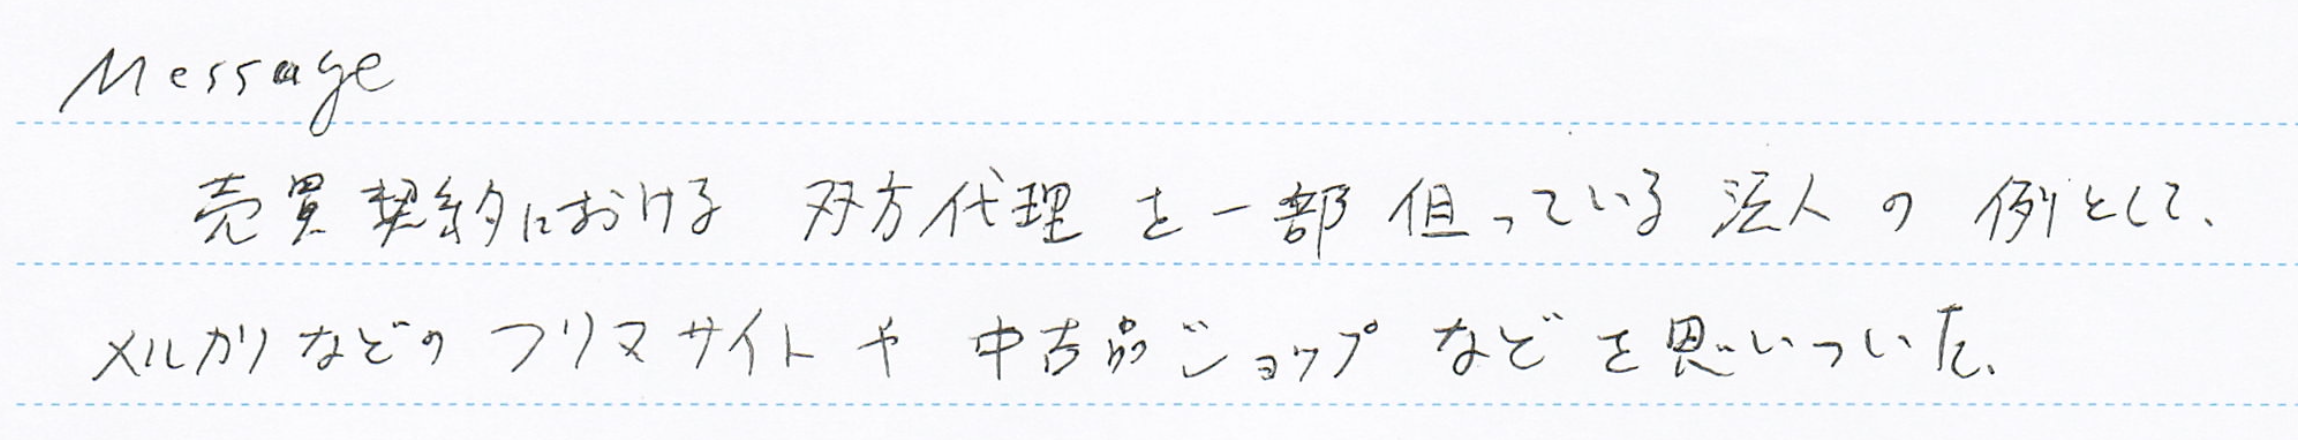 Message
売買契約における 双方代理 を一部 但っている 法人 の 例として、
メルカリなどの フリマサイト や 中古品ショップ などを思いついた。